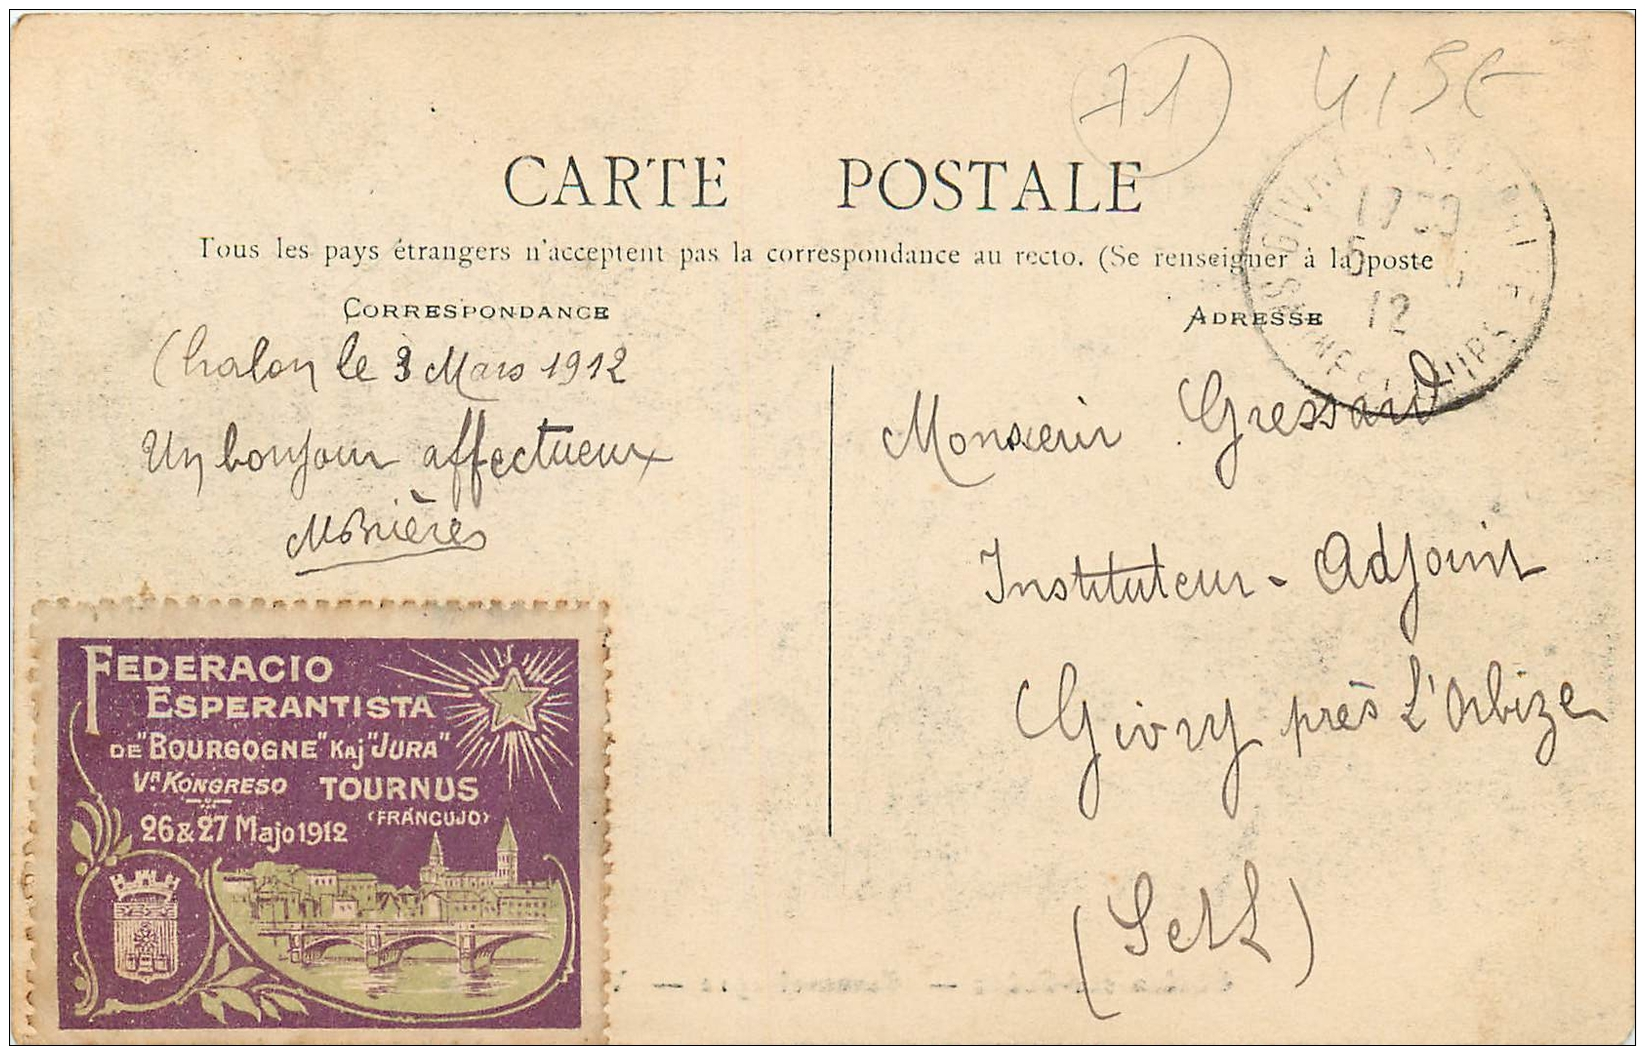 71
CARTE POSTALE
Tous les pays étrangers n'acceptent pas la correspondance au recto. (Se renseigner à la poste
CORRESPONDANCE
ADRESSE
Chalon le 3 Mars 1912
Un bonjour affectueux
MBrières
Monsieur Gressard
Instituteur-Adjoint
Givry près L'Orbize
(S et L)
GIVRY
12
FEDERACIO
ESPERANTISTA
DE "BOURGOGNE" KAJ "JURA"
VA KONGRESO TOURNUS
26 & 27 Majo 1912 (FRANCUJO)